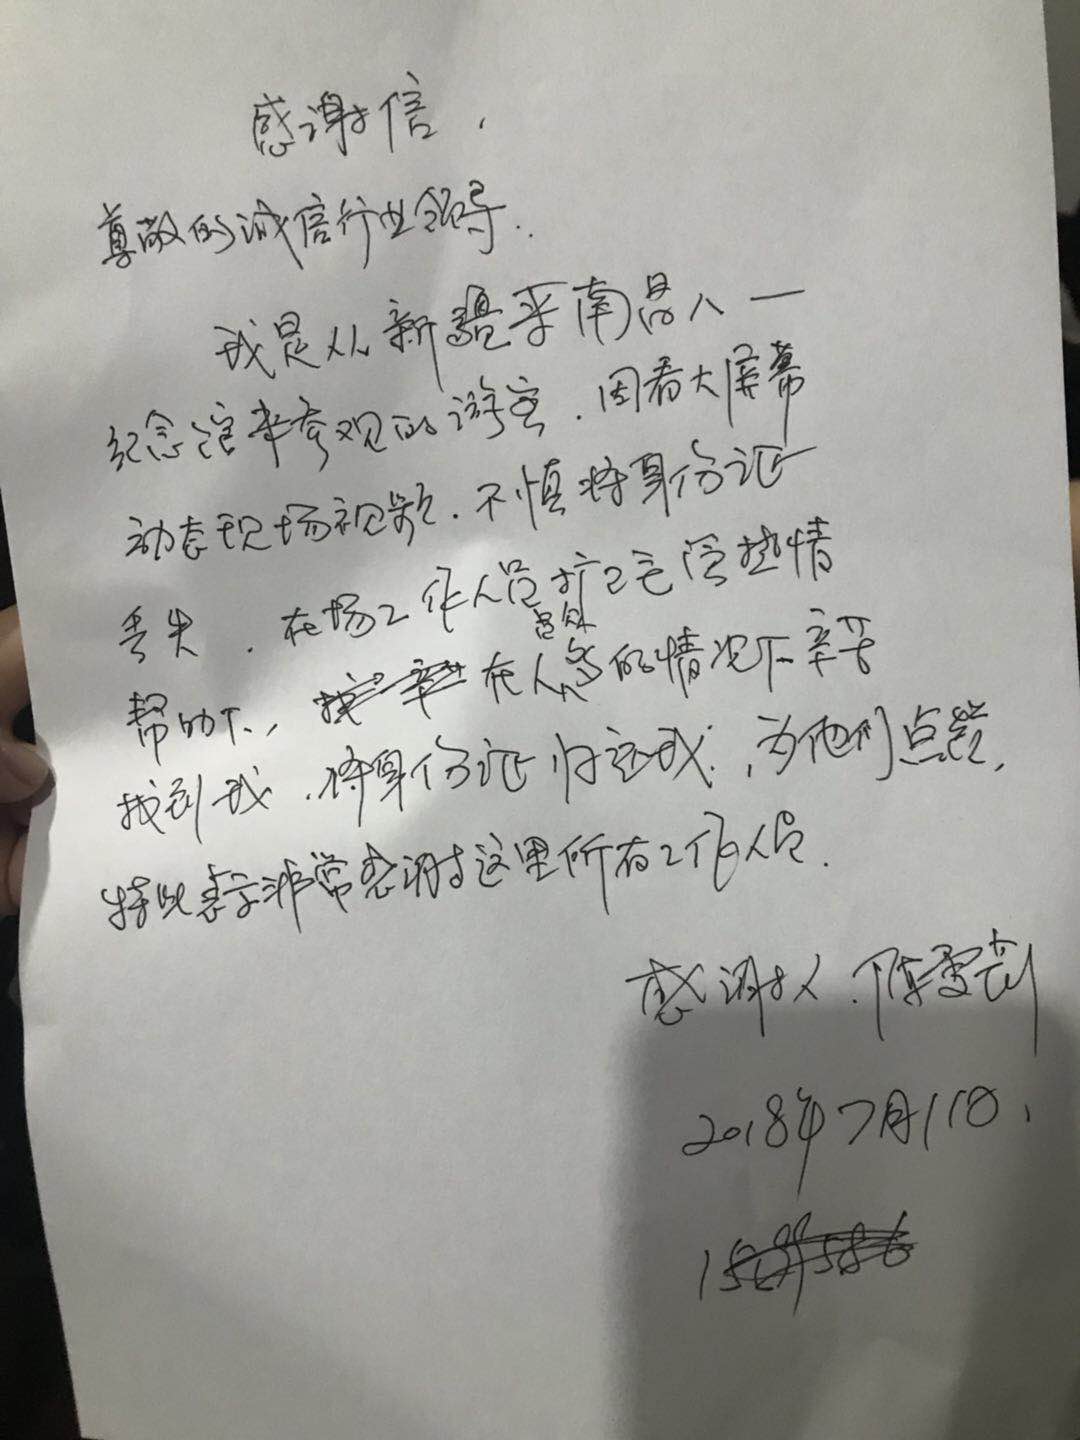 感谢信，
尊敬的诚信行业领导：
我是从新疆来南昌八一
纪念馆来参观的游客，因看大屏幕
动态现场视频，不慎将身份证
丢失，在场工作人员热情
帮助下，在人多的情况下辛苦
找到我，将身份证归还我，为他们点赞，
特此表示非常感谢这里所有工作人员.
感谢人：陈雪
2018年7月11日，